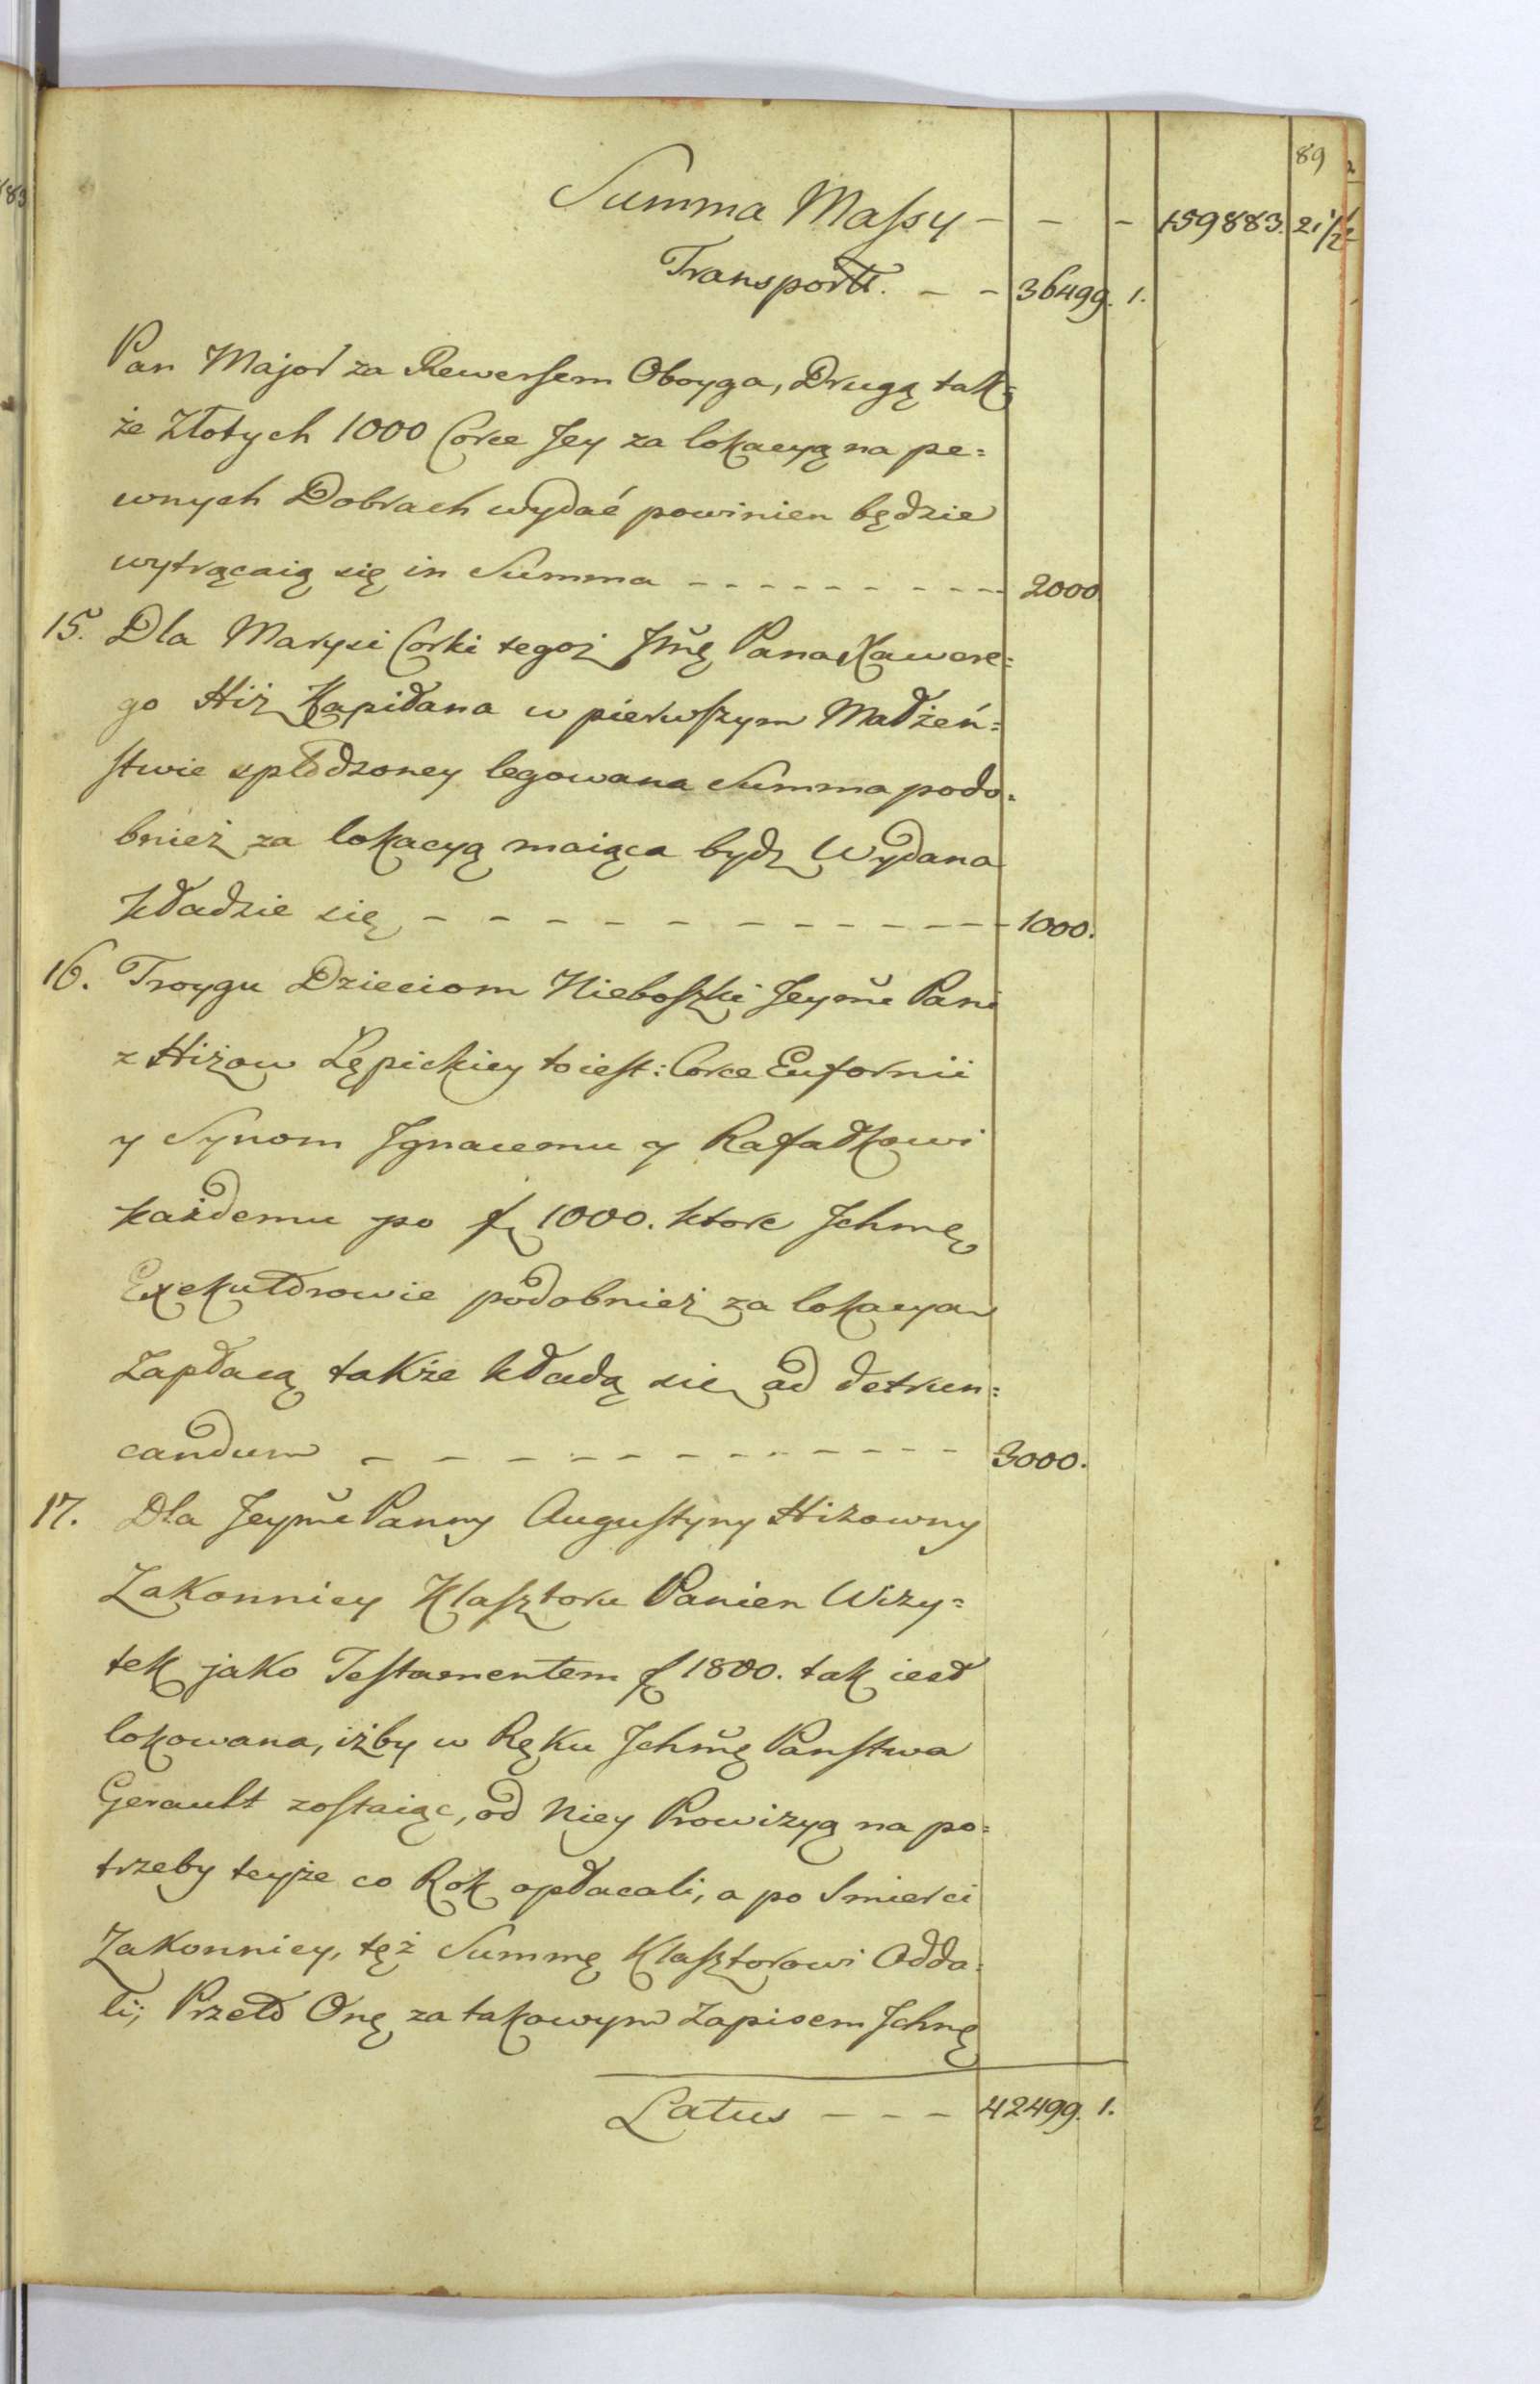 89
Summa Massy - - - 159883. 21 1/2
Transportt. - - 36499. 1.
Pan Major za Rewersem Oboyga, Drugą tak=
że Złotych 1000 Corce Jey za lokacyą na pe=
wnych Dobrach wydać powinien będzie
wytrącaią się in Summa - - - - - - - - - 2000
15. Dla Marysi Corki tegoż Jmę Pana Xawere=
go Hiż Kapitana w pierwszym Małżeń=
stwie spłodzoney legowana Summa podo=
bnież za lokacyą maiąca bydz Wydana
kładzie się - - - - - - - - - - - 1000.
16. Troygu Dzieciom Nieboszki Jeymę Pani
z Hiżow Lępickiey to iest: Corce Eufornii
y Synom Jgnacemu y Rafałkowi
każdemu po f 1000. ktore Jchmę
Exekutorowie podobnież za lokacyą
zapłacą także kładą się ad detrun=
candum - - - - - - - - - - - 3000.
17. Dla Jeymę Panny Augustyny Hiżowny
Zakonnicy Klasztoru Panien Wizy=
tek jako Testamentem f 1800. tak iest
lokowana, iżby w Ręku Jchmę Panstwa
Gerault zostaiąc, od Niey Prowizyą na po=
trzeby teyże co Rok opłacali, a po Smierci
Zakonnicy, tęż Summę Klasztorowi Odda=
li; Przeto Onę za takowym zapisem Jchmę
Latus - - - 42499. 1.